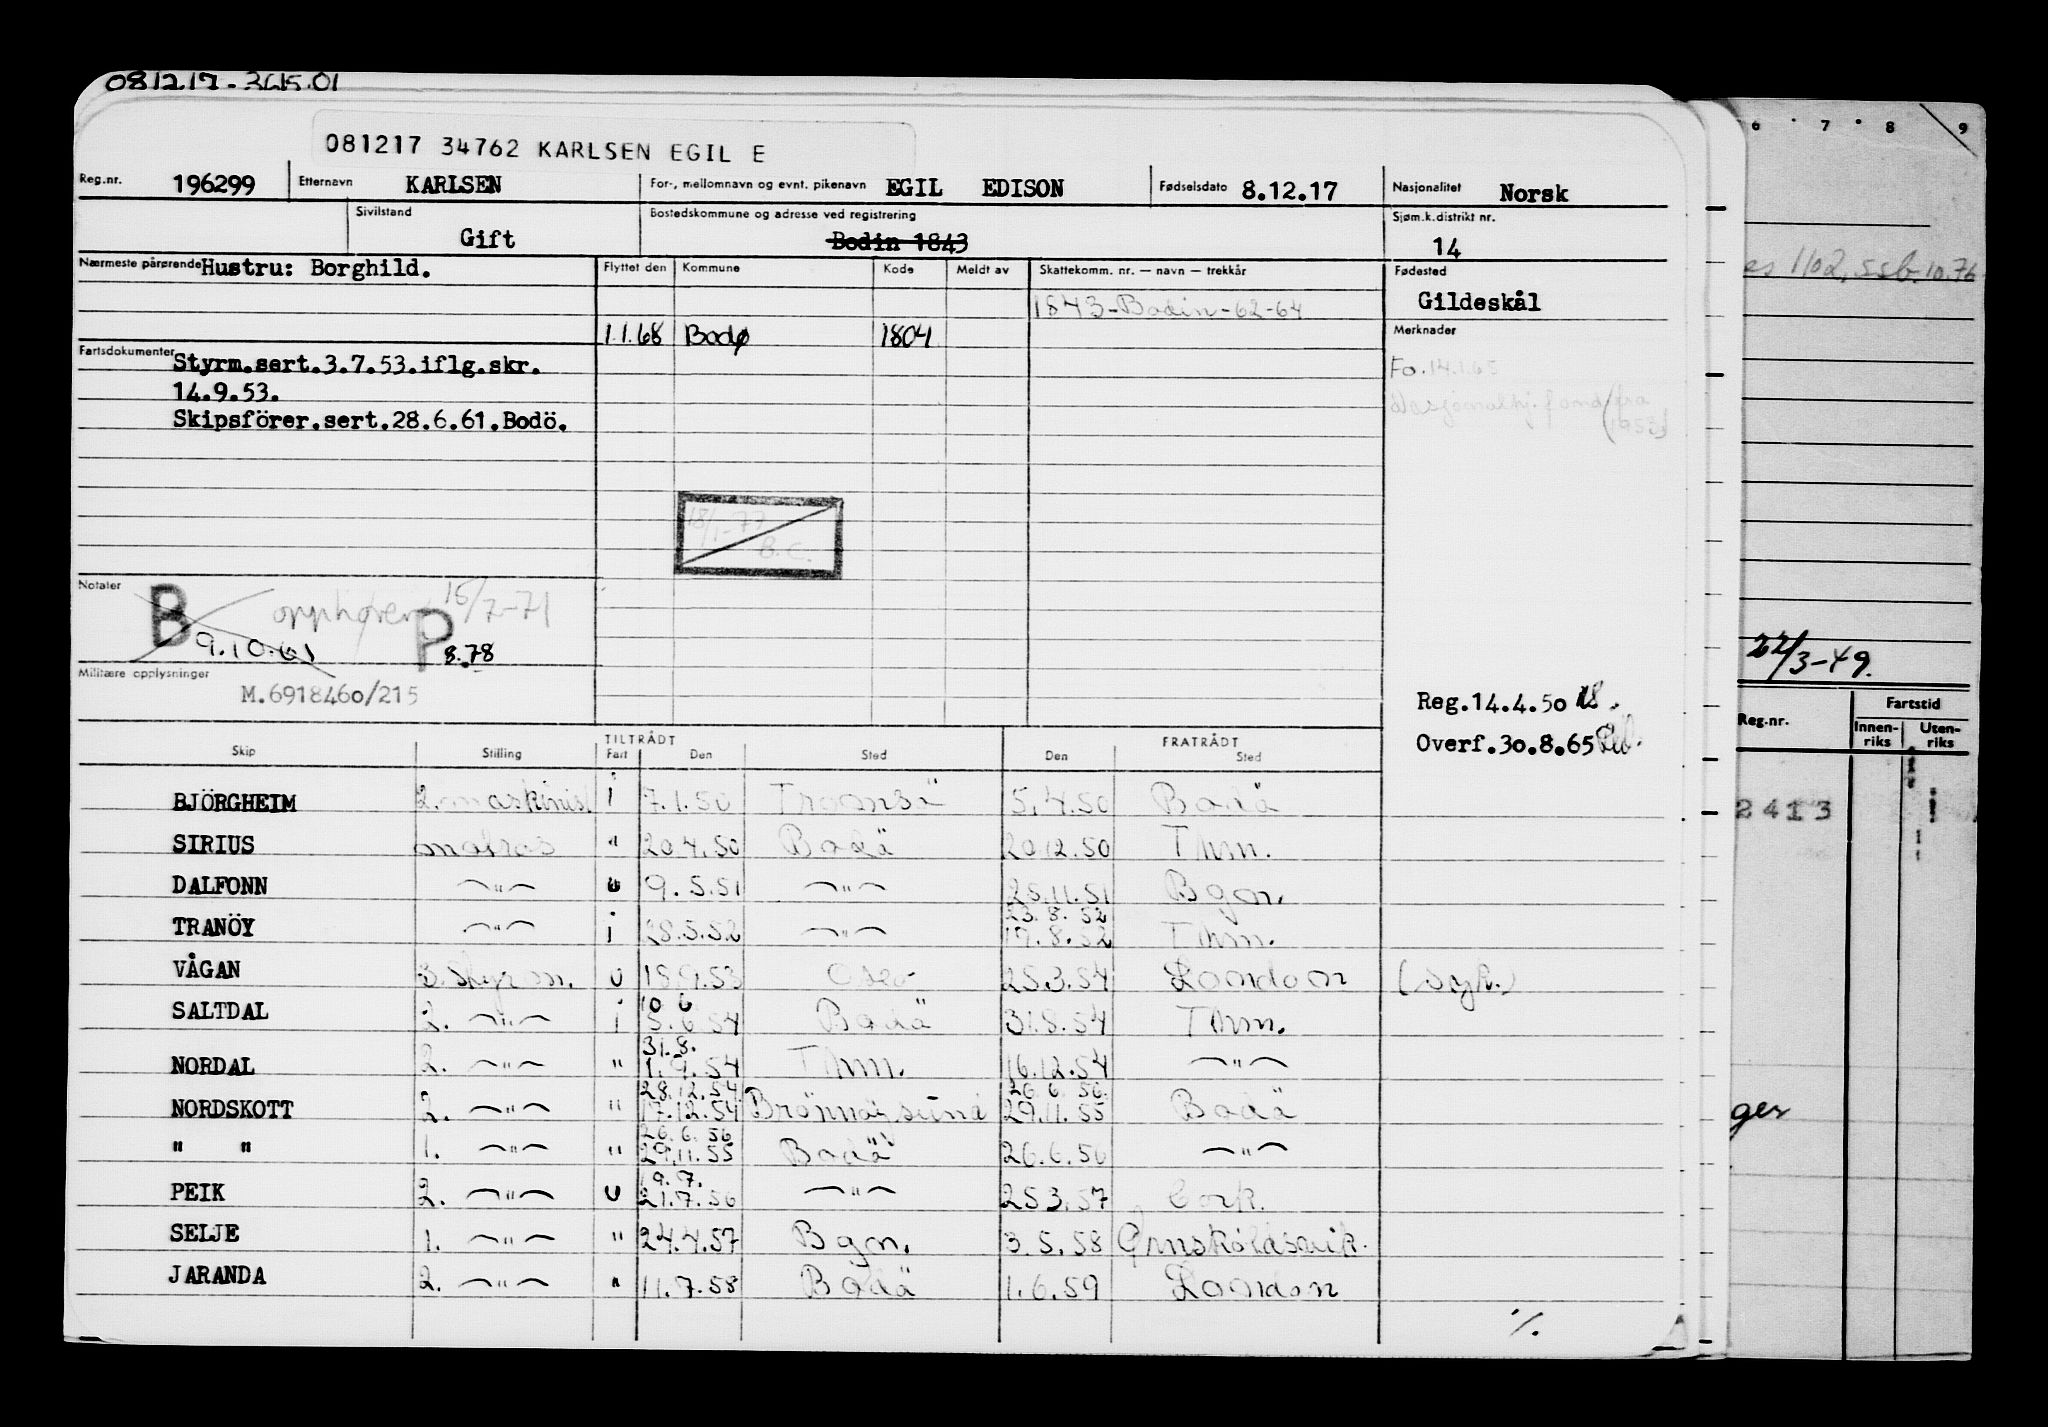 081217 - 3615.01
081217 34762 KARLSEN EGIL E
Reg.nr. 196299 Etternavn KARLSEN For-, mellomnavn og evnt. pikenavn EGIL EDISON Fødselsdato 8.12.17 Nasjonalitet Norsk
Sivilstand Gift Bostedskommune og adresse ved registrering Bodin 1843 Sjøm.k.distrikt nr. 14
Nærmeste pårørende Hustru: Borghild. Flyttet den Kommune Kode Meldt av Skattekomm. nr. — navn — trekkår Fødested
1843-Bodin-62-64 Gildeskål
1.1.68 Bodø 1804 Merknader
Fartsdokumenter Styrm.sert.3.7.53.iflg.skr. Fo. 14.1.65
14.9.53. (fra
Skipsförer.sert.28.6.61.Bodö. 1953)
18/1-77
B.C.
Notater B opphører 15/7-71
9.10.61 P 8.78
Militære opplysninger
M.6918460/215
Reg.14.4.50
Overf.30.8.65
TILTRÅDT FRATRÅDT
Skip Stilling Fart Den Sted Den Sted
BJÖRGHEIM 2. maskinist i 7.1.50 Tromsö 5.4.50 Bodö
SIRIUS matros " 20.4.50 Bodö 20.12.50 Thm.
DALFONN —"— u 9.5.51 —"— 25.11.51 Bgn.
23.8.52
TRANÖY —"— i 28.5.52 —"— 17.8.52 Thm.
VÅGAN 3. styrm. u 18.9.53 Oslo 25.3.54 London (syk.)
10 6
SALTDAL 2. —"— i 5.6.54 Bodö 31.8.54 Thm.
31.8.
NORDAL 2. —"— " 1.9.54 Thm. 16.12.54 —"—
28.12.54 26.6.56.
NORDSKOTT 2. —"— " 17.12.54 Brönnöysund 29.11.55 Bodö
26.6.56
" " 1. —"— " 29.11.55 Bodö 26.6.56 —"—
19.7.
PEIK 2. —"— u 21.7.56 —"— 25.3.57 Cork.
SELJE 1. —"— " 24.4.57 Bgn. 3.5.58 Örnsköldsvik.
JARANDA 2. —"— " 11.7.58 Bodö 1.6.59 London
./.
6 7 8 9
1102, ssb. 10.76
22/3-49.
Reg.nr. Fartstid
Innenriks Utenriks
2413
ger